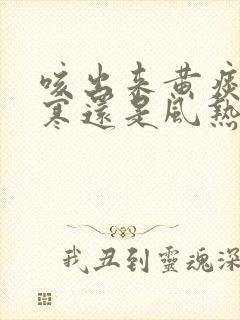 咳出来黄痰
寒還是風熱
我丑到靈魂深